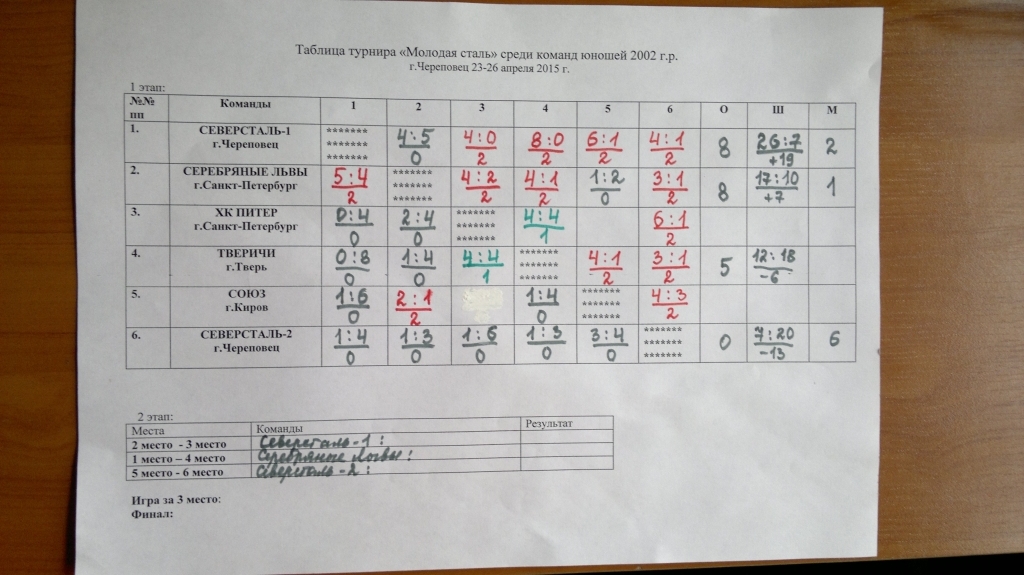 Таблица турнира «Молодая сталь» среди команд юношей 2002 г.р.
г.Череповец 23-26 апреля 2015 г.
1 этап:
№№ пп Команды 1 2 3 4 5 6 О Ш М
1. СЕВЕРСТАЛЬ-1 ******* 4:5 4:0 8:0 6:1 4:1 8 26:7 2
г.Череповец ******* 0 2 2 2 2 +19
*******
2. СЕРЕБРЯНЫЕ ЛЬВЫ 5:4 ******* 4:2 4:1 1:2 3:1 8 17:10 1
г.Санкт-Петербург 2 ******* 2 2 0 2 +7
*******
3. ХК ПИТЕР 0:4 2:4 ******* 4:4 6:1
г.Санкт-Петербург 0 0 ******* 1 2
*******
4. ТВЕРИЧИ 0:8 1:4 4:4 ******* 4:1 3:1 5 12:18
г.Тверь 0 0 1 ******* 2 2 -6
*******
5. СОЮЗ 1:6 2:1 1:4 ******* 4:3
г.Киров 0 2 0 ******* 2
*******
6. СЕВЕРСТАЛЬ-2 1:4 1:3 1:6 1:3 3:4 ******* 0 7:20 6
г.Череповец 0 0 0 0 0 ******* -13
*******
2 этап:
Места Команды Результат
2 место - 3 место Северсталь-1 :
1 место – 4 место Серебряные Львы :
5 место - 6 место Северсталь-2 :
Игра за 3 место:
Финал: